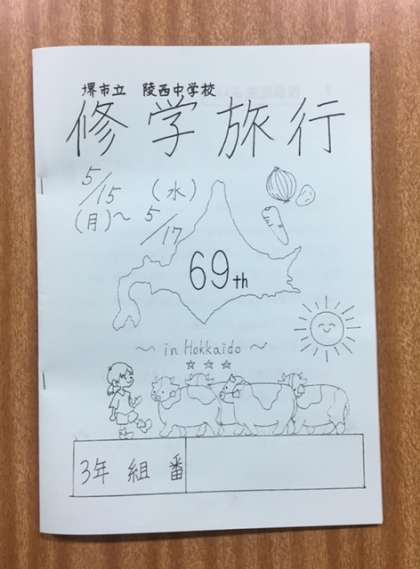 堺市立　陵西中学校
修学旅行
5/15(月)～5/17(水)
69th
～ in Hokkaido ～
☆☆☆
3年 組 番